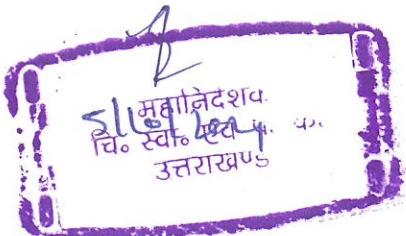 महानिदेशक
चि० स्वा० एवं प. क.
उत्तराखण्ड